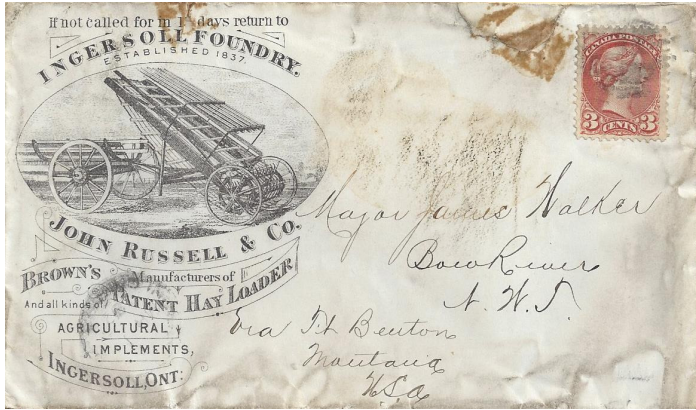 If not called for in 1 days return to
INGERSOLL FOUNDRY.
ESTABLISHED 1837.
JOHN RUSSELL & CO.
Manufacturers of
BROWN'S PATENT HAY LOADER
And all kinds of
AGRICULTURAL
IMPLEMENTS,
INGERSOLL, ONT.
CANADA POSTAGE
3 CENTS 3
Major James Walker
Bow River
N. W. T.
Via Ft Benton
Montana
USA